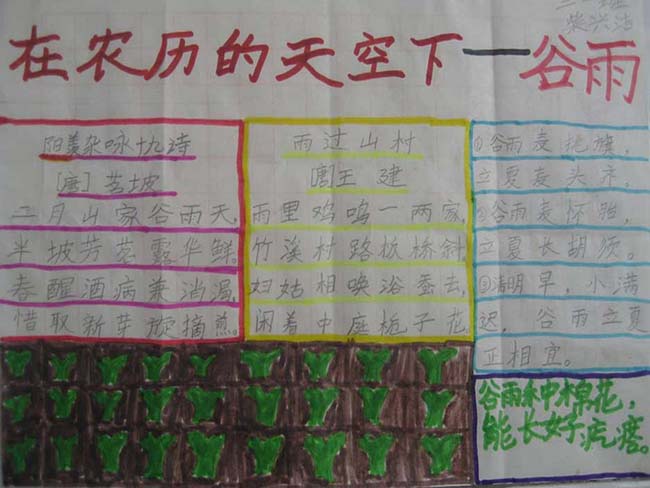 在农历的天空下一谷雨
阳羡杂咏九诗
[唐] 茗坡
二月山家谷雨天,
半坡芳茗露华鲜。
春醒酒病兼消渴,
惜取新芽旋摘煎。
雨过山村
[唐]王建
雨里鸡鸣一两家,
竹溪村路板桥斜
妇姑相唤浴蚕去,
闲着中庭栀子花。
①谷雨麦挑旗,
立夏麦头齐。
②谷雨麦怀胎,
立夏长胡须。
③清明早,小满
迟,谷雨立夏
正相宜。
谷雨未中棉花,
能长好疙瘩。